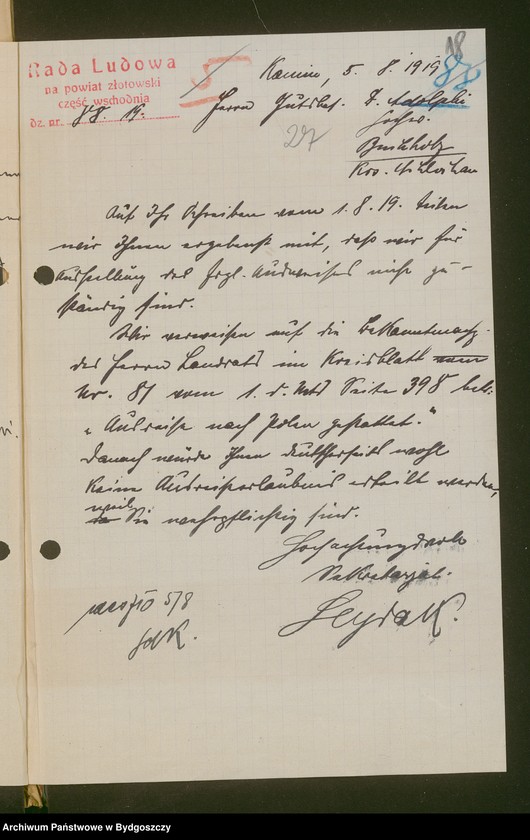 18
Rada Ludowa
na powiat złotowski
część wschodnia
dz. nr. 78. 19.
Kamin, 5. 8. 1919
Herrn Gutsbes. F. Adolphi
Buchholz
Krs. Schlochau
27
Auf Ihr Schreiben vom 1. 8. 19. teilen
wir Ihnen ergebenst mit, daß wir für
Ausstellung des frgl. Ausweises nicht zu-
ständig sind.
Wir verweisen auf die Bekanntmachg.
des Herrn Landrats im Kreisblatt
Nr. 81 vom 1. d. Mts Seite 398 betr.
„Ausreise nach Polen gestattet."
Danach würde Ihnen deutscherseits wohl
keine Ausreiseerlaubnis erteilt werden,
weil Sie wehrpflichtig sind.
Hochachtungsvoll
Sekretarjat.
5/8
Archiwum Państwowe w Bydgoszczy